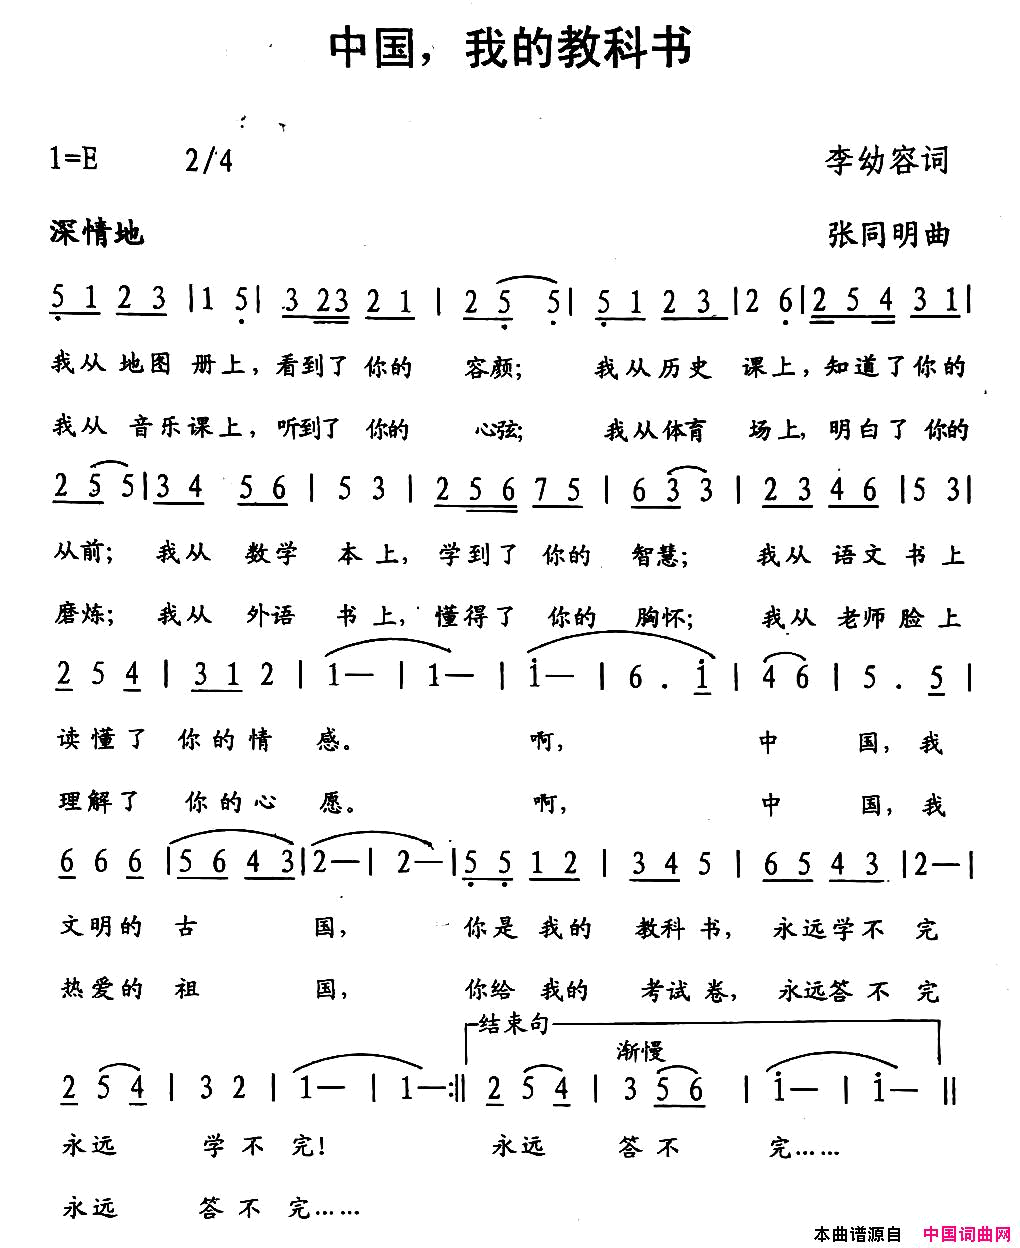 中国，我的教科书
1=E 2/4 李幼容词
深情地 张同明曲
5 1 2 3 | 1 5 | 3 2 3 2 1 | 2 5 5 | 5 1 2 3 | 2 6 | 2 5 4 3 1 |
我从 地图 册上，看到了 你的 容颜； 我从历史 课上，知道了你的
我从 音乐课上，听到了 你的 心弦； 我从体育 场上，明白了你的
2 5 5 | 3 4 5 6 | 5 3 | 2 5 6 7 5 | 6 3 3 | 2 3 4 6 | 5 3 |
从前； 我从 数学 本上，学到了 你的 智慧； 我从 语文 书上
磨炼；我从 外语 书上，懂得了 你的 胸怀； 我从 老师脸上
2 5 4 | 3 1 2 | 1 — | 1 — | i — | 6 . i | 4 6 | 5 . 5 |
读懂了 你的情 感。 啊， 中 国，我
理解了 你的心 愿。 啊， 中 国，我
6 6 6 | 5 6 4 3 | 2 — | 2 — | 5 5 1 2 | 3 4 5 | 6 5 4 3 | 2 — |
文明的 古 国， 你是 我的 教科 书，永远学不 完
热爱的 祖 国， 你给 我的 考试卷，永远答不 完
结束句
渐慢
2 5 4 | 3 2 | 1 — | 1 — :‖ 2 5 4 | 3 5 6 | i — | i — ‖
永远 学不 完！ 永远 答不 完……
永远 答不 完……
本曲谱源自 中国词曲网